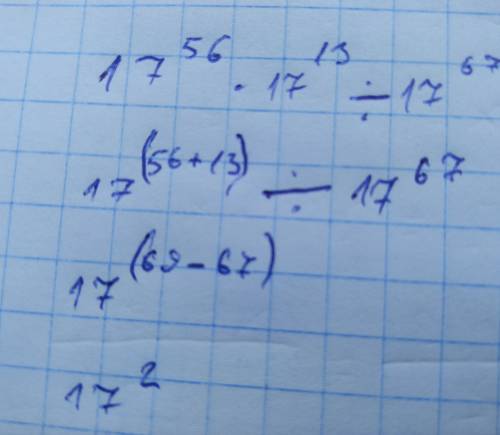 17^56 · 17^13 ÷ 17^67
17^(56+13) ÷ 17^67
17^(69-67)
17^2